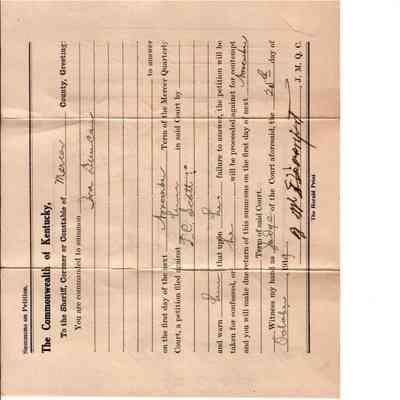 Summons on Petition.
The Commonwealth of Kentucky,
To the Sheriff, Coroner or Constable of Mercer County, Greeting:
You are commanded to summon Ira Duncan
to answer
on the first day of the next November Term of the Mercer Quarterly
Court, a petition filed against him in said Court by
T. C. Scott
and warn him that upon his failure to answer, the petition will be
taken for confessed, or he will be proceeded against for contempt
and you will make due return of this summons on the first day of next November
Term of said Court.
Witness my hand as Judge of the Court aforesaid, the 20th day of
October, 1919
J. M. Q. C.
The Herald Print